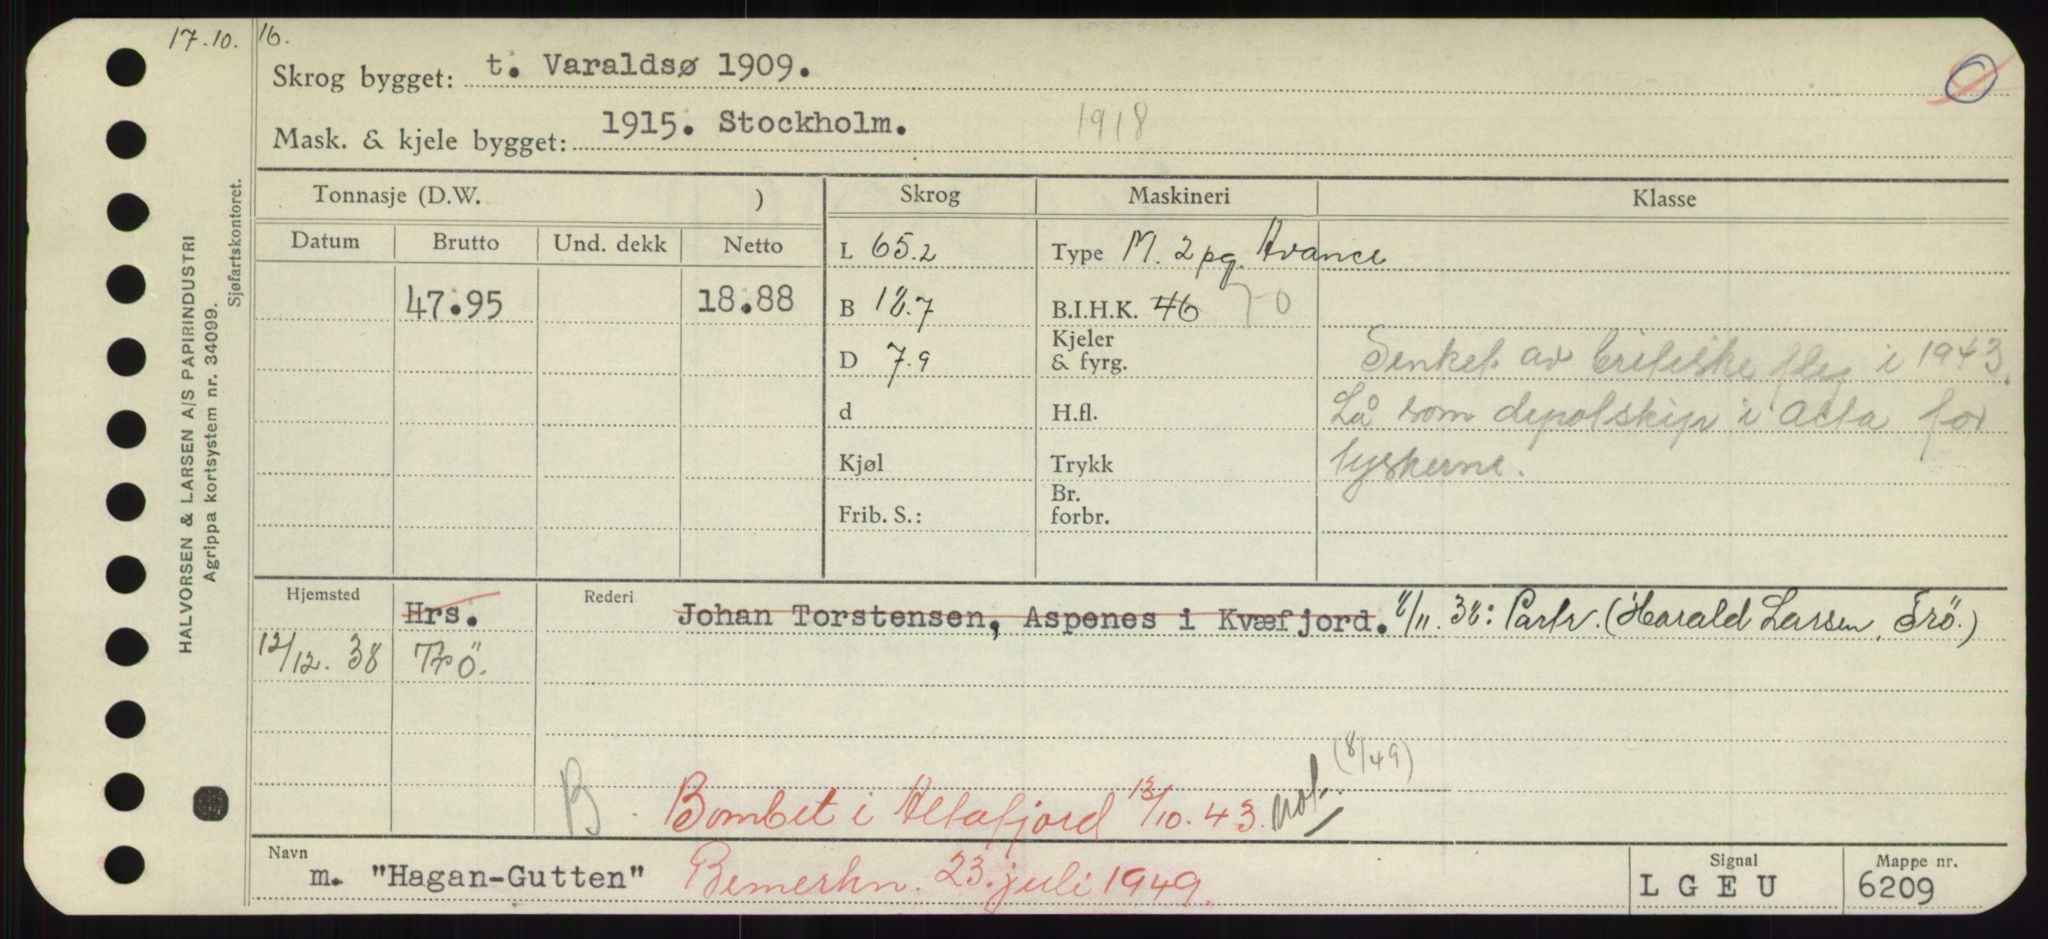 17.10. 16.
Skrog bygget: t. Varaldsø 1909.
Mask. & kjele bygget: 1915. Stockholm. 1918
Tonnasje (D.W. ) Skrog Maskineri Klasse
Datum Brutto Und. dekk Netto
L 65.2 Type M. 2 pg. Avance
47.95 18.88 B 18.7 B.I.H.K. 46 70
D 7.9 Kjeler & fyrg.
Senket av britiske fly i 1943.
d H.fl. Lå som depotskip i Alta for
Kjøl Trykk tyskerne.
Frib. S.: Br. forbr.
Hjemsted Hrs. Rederi Johan Torstensen, Aspenes i Kvæfjord. 8/11. 38: Partr. (Harald Larsen, Trö.)
12/12. 38 Trö.
(8/49)
B Bombet i Altafjord 13/10. 43. not.
Navn m. "Hagan-Gutten" Bemerkn. 23. juli 1949.
Signal LGEU
Mappe nr. 6209
HALVORSEN & LARSEN A/S PAPIRINDUSTRI
Agrippa kortsystem nr. 34099.
Sjøfartskontoret.